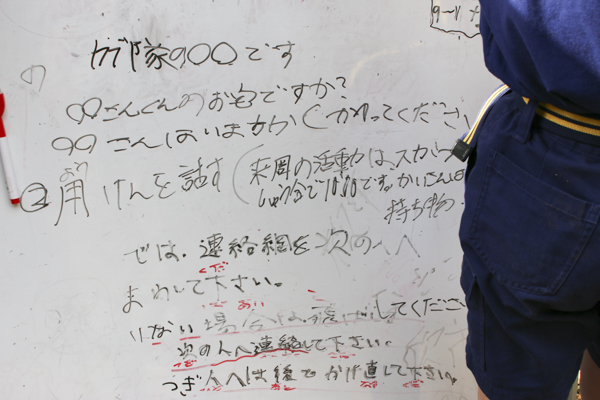 9〜11
カブ隊の〇〇です
〇〇さんくんのお宅ですか？
〇〇さんはいますか(かわってくださ
②用けんを話す(来周の活動は、スカウト
しゅう会で10:00です。かいさんは
持ち物
では、連絡網を次の人へ
まわして下さい。
いない場合は してくださ
次の人へ連絡して下さい。
つぎ人へは後でかけ直して下さい。